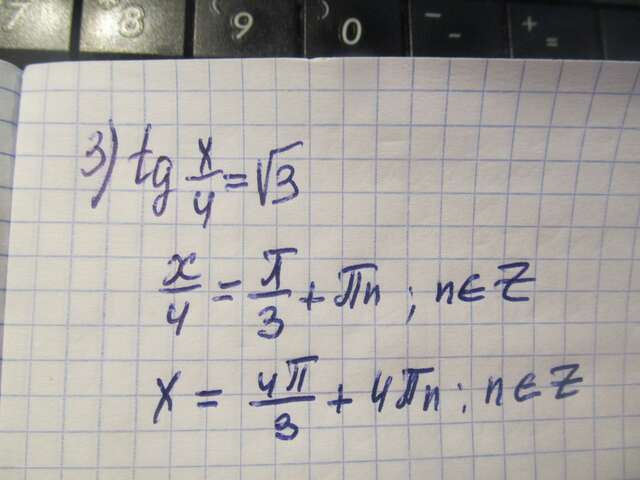 7 8 9 0 - + =
3) tg x/4 = √3
x/4 = π/3 + πn ; n ∈ Z
x = 4π/3 + 4πn ; n ∈ Z